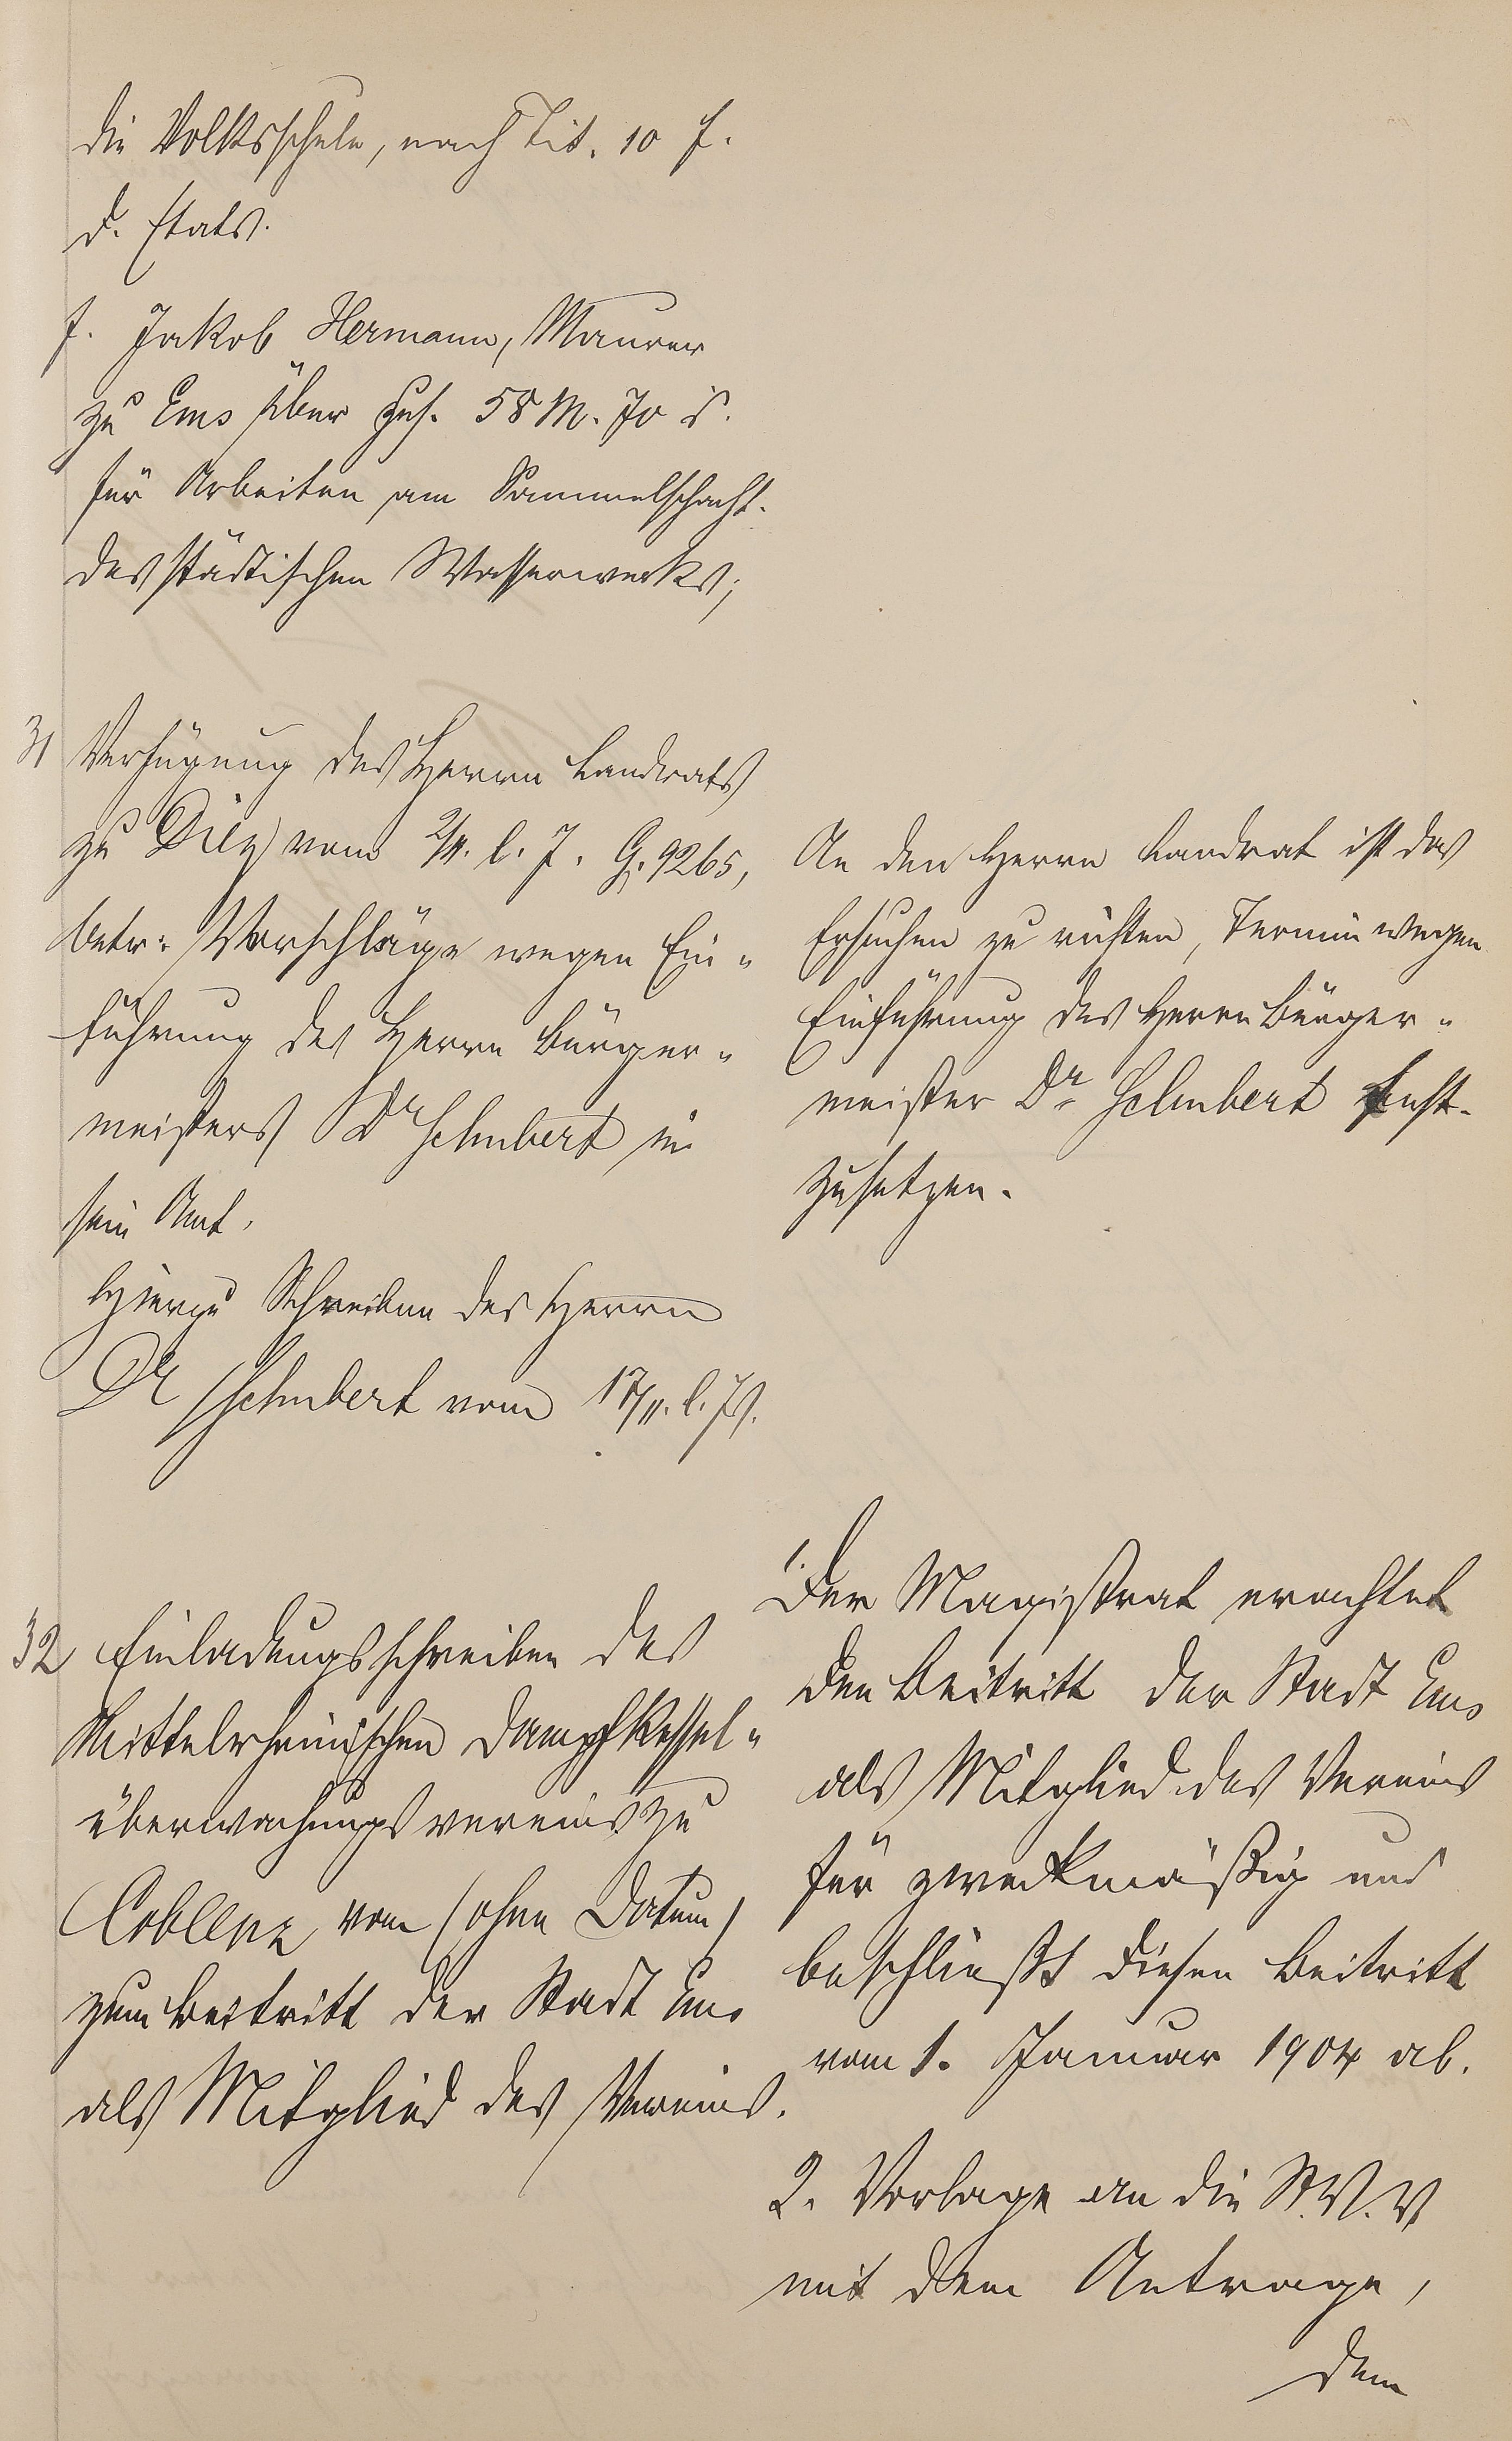 die Volksschule, nach Tit. 10 f.
d. Etats.
f. Jakob Hermann, Maurer
zu Ems über zus. 58 M. 70 S.
für Arbeiten am Sammelschacht.
des städtischen Wasserwerks;
31 Verfügung des Herrn Landrats
zu Diez vom 2/11. l. J. G. 9265,
betr: Vorschläge wegen Ein-
führung des Herrn Bürger-
meisters Dr Schubert in
sein Amt.
Hierzu Schreiben des Herrn
Dr Schubert vom 17/11. l. Js.
An den Herrn Landrat ist das
Ersuchen zu richten, Termin wegen
Einführung des Herrn Bürger-
meister Dr Schubert fest-
zusetzen.
32 Einladungsschreiben des
Mittelrheinischen Dampfkessel-
überwachungsvereins zu
Coblenz vom (ohne Datum)
zum Beitritt der Stadt Ems
als Mitglied des Vereins.
1. Der Magistrat erachtet
den Beitritt der Stadt Ems
als Mitglied des Vereins
für zweckmäßig und
beschließt diesen Beitritt
vom 1. Januar 1904 ab.
2. Vorlage an die St. V. V.
mit dem Antrage,
dem